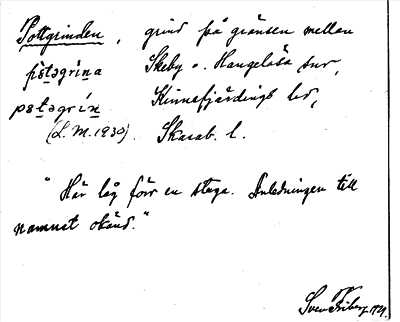 Pottgrinden, grind på gränsen mellan
pȯt̲əgrina Skeby o. Hangelösa snr,
pot̲əgrin Kinnefjärdings hd,
(L. M. 1930). Skarab. l.
"Här låg förr en stuga. Anledningen till
namnet okänd."
Sven Friberg 1921.